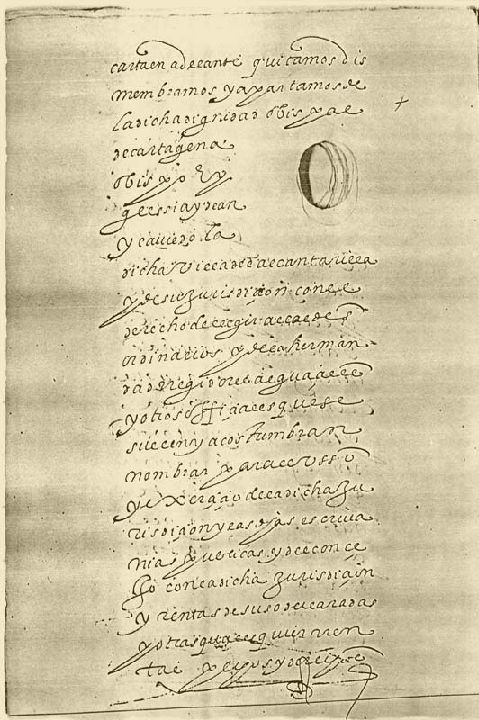 carta en adelante quitamos dis
membramos y apartamos de
la dicha dignidad obispal
de cartagena
obispo e y
glessia y dean
y cavildo la
dicha villa de alcantarilla
y de su jurisdiçion con el
derecho de elegir alcaldes
ordinarios y de la herman
dad e regidores alguaçiles
y otros offiçiales que se
suelen y acostumbran
nombrar para el usso
y exerçiçio de la dicha ju
risdiçion y las dhas escriva
nias publicas y del conçe
jo con la dicha jurisdiçion
y rentas de suso declaradas
y otras qualesquier mon
tal